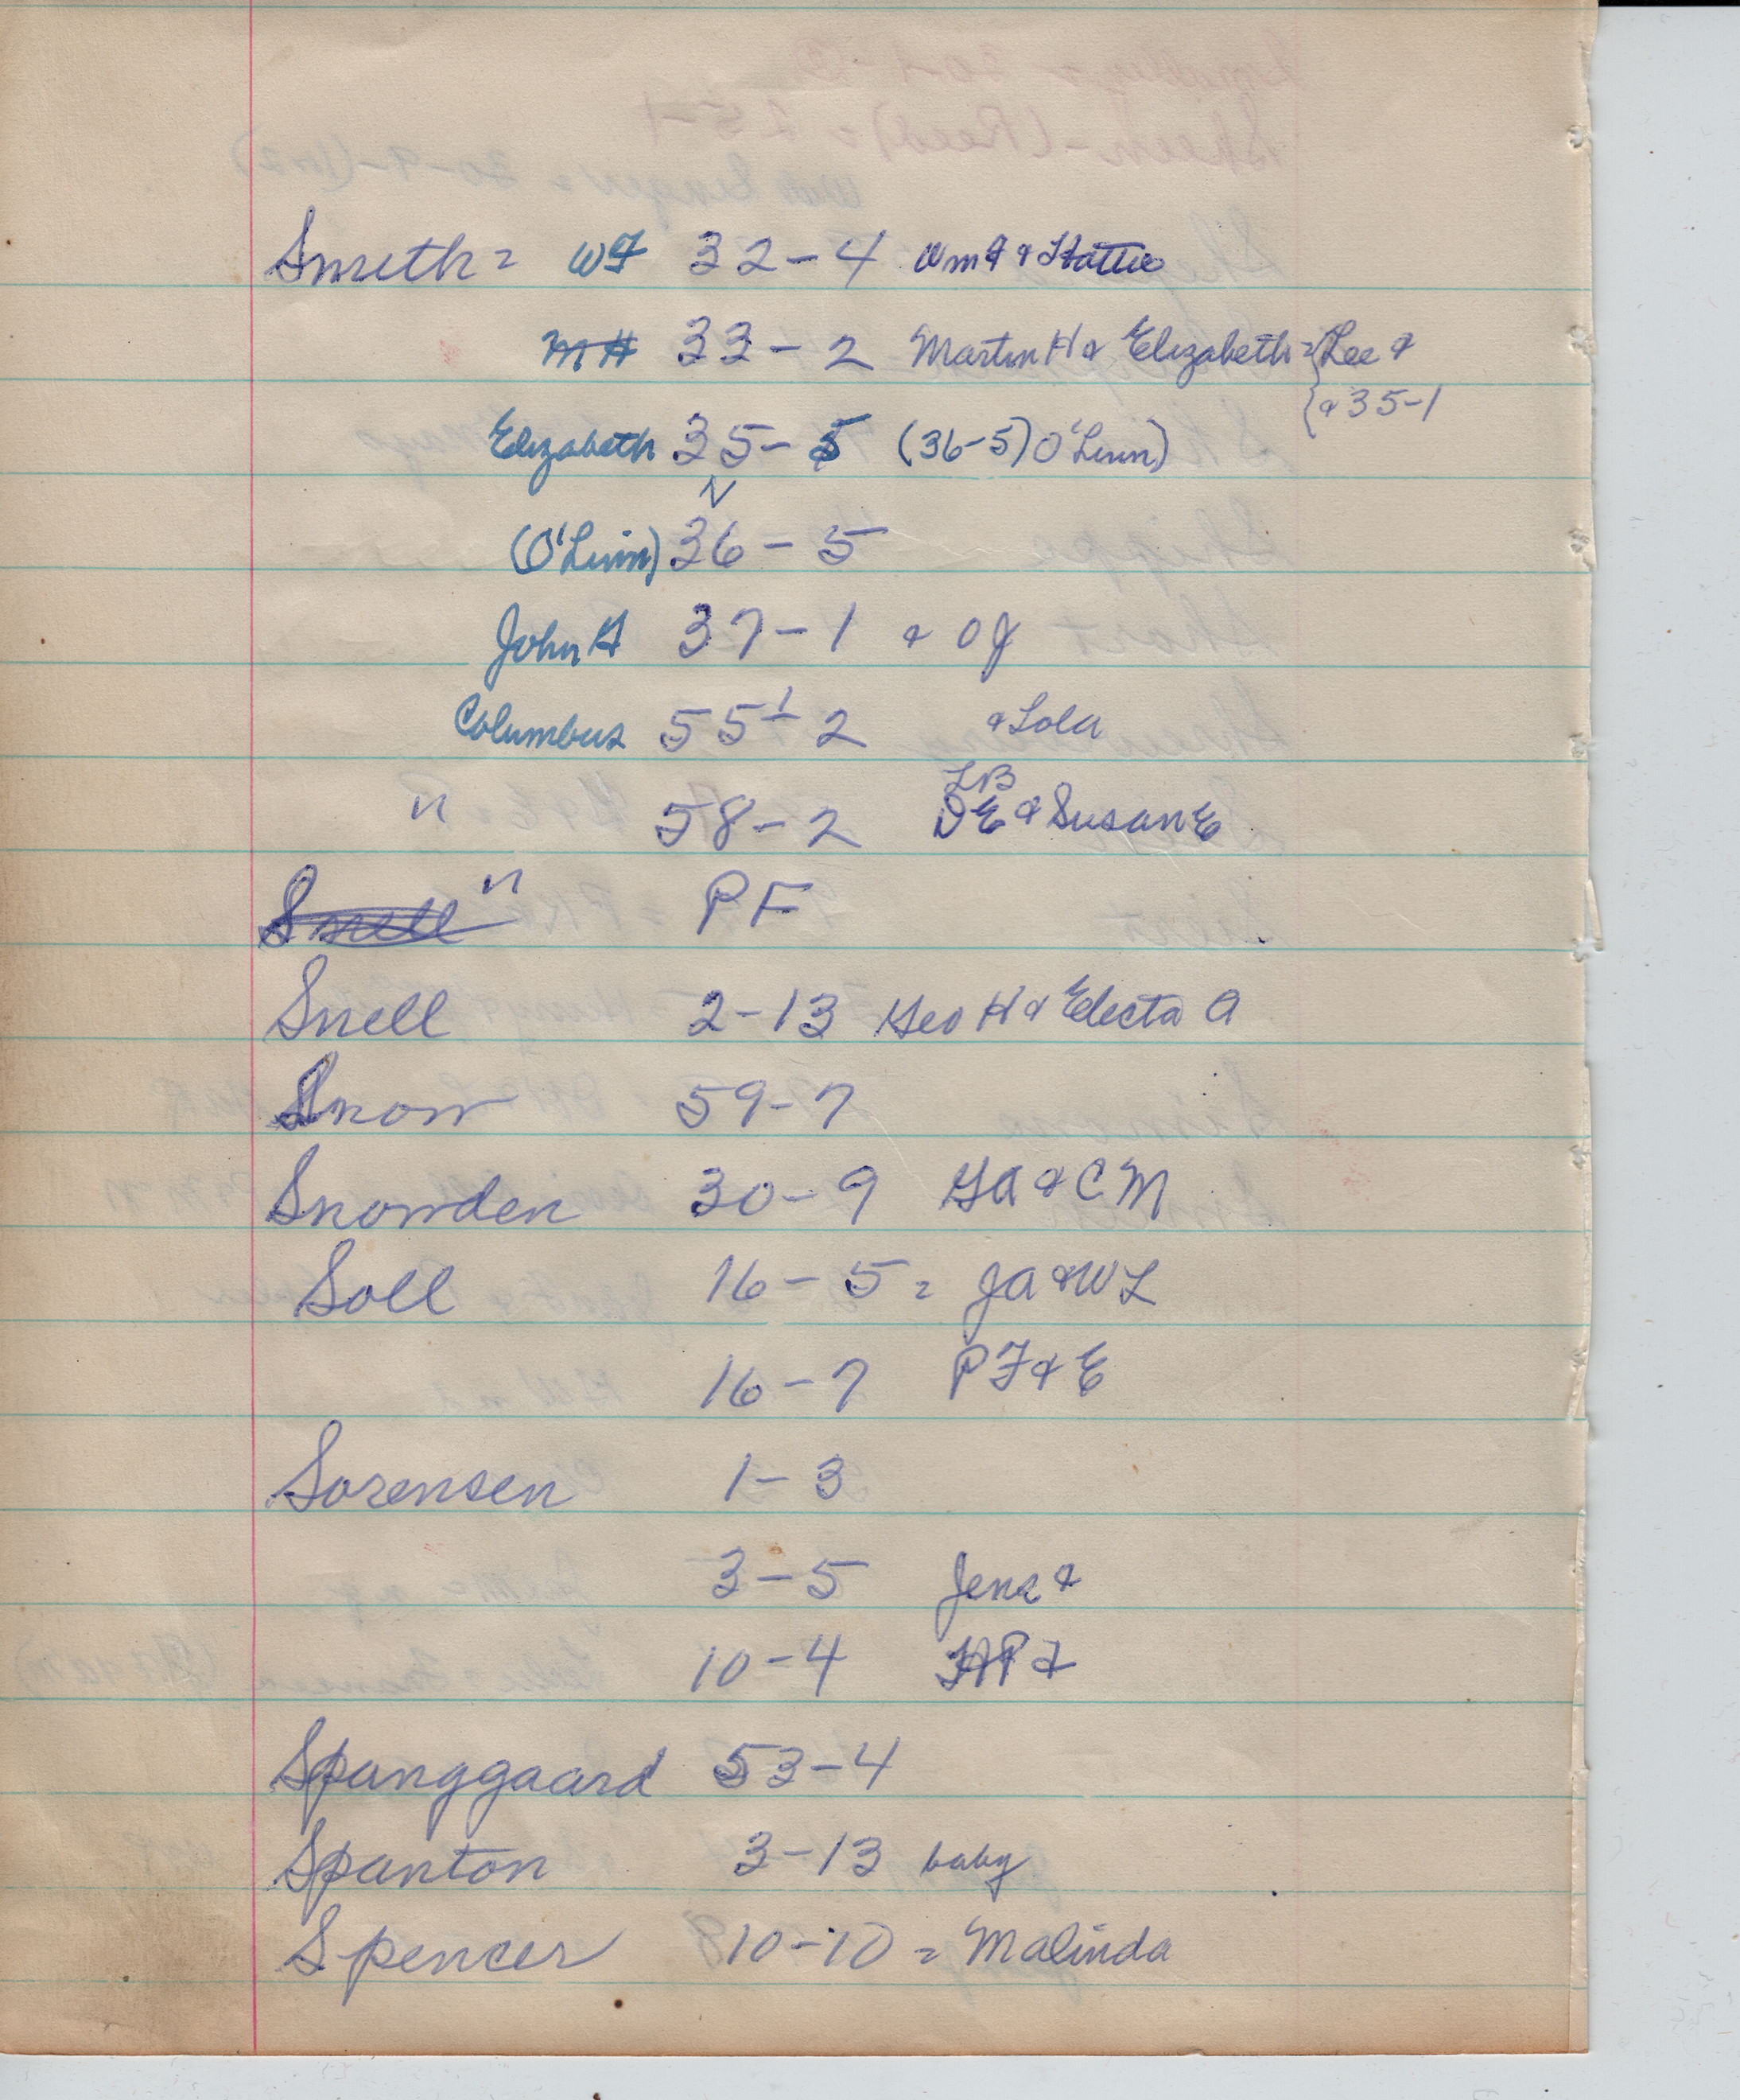 Smith = WF 32-4 Wm F & Hattie
MH 33-2 Martin H & Elizabeth = {Lee &
{& 35-1
Elizabeth 35-5 (36-5) O'Linn)
N
(O'Linn) 36-5
John H 37-1 & OJ
Columbus 55-2 & Lola
LB
" 58-2 DE & Susan E
Snell " PF
Snell 2-13 Geo H & Electa A
Snow 59-7
Snowden 30-9 GA & CM
Soll 16-5 = JA & WL
16-7 PF & E
Sorensen 1-3
3-5 Jens &
10-4 HP &
Spanggaard 53-4
Spanton 3-13 baby
Spencer 10-10 = Malinda